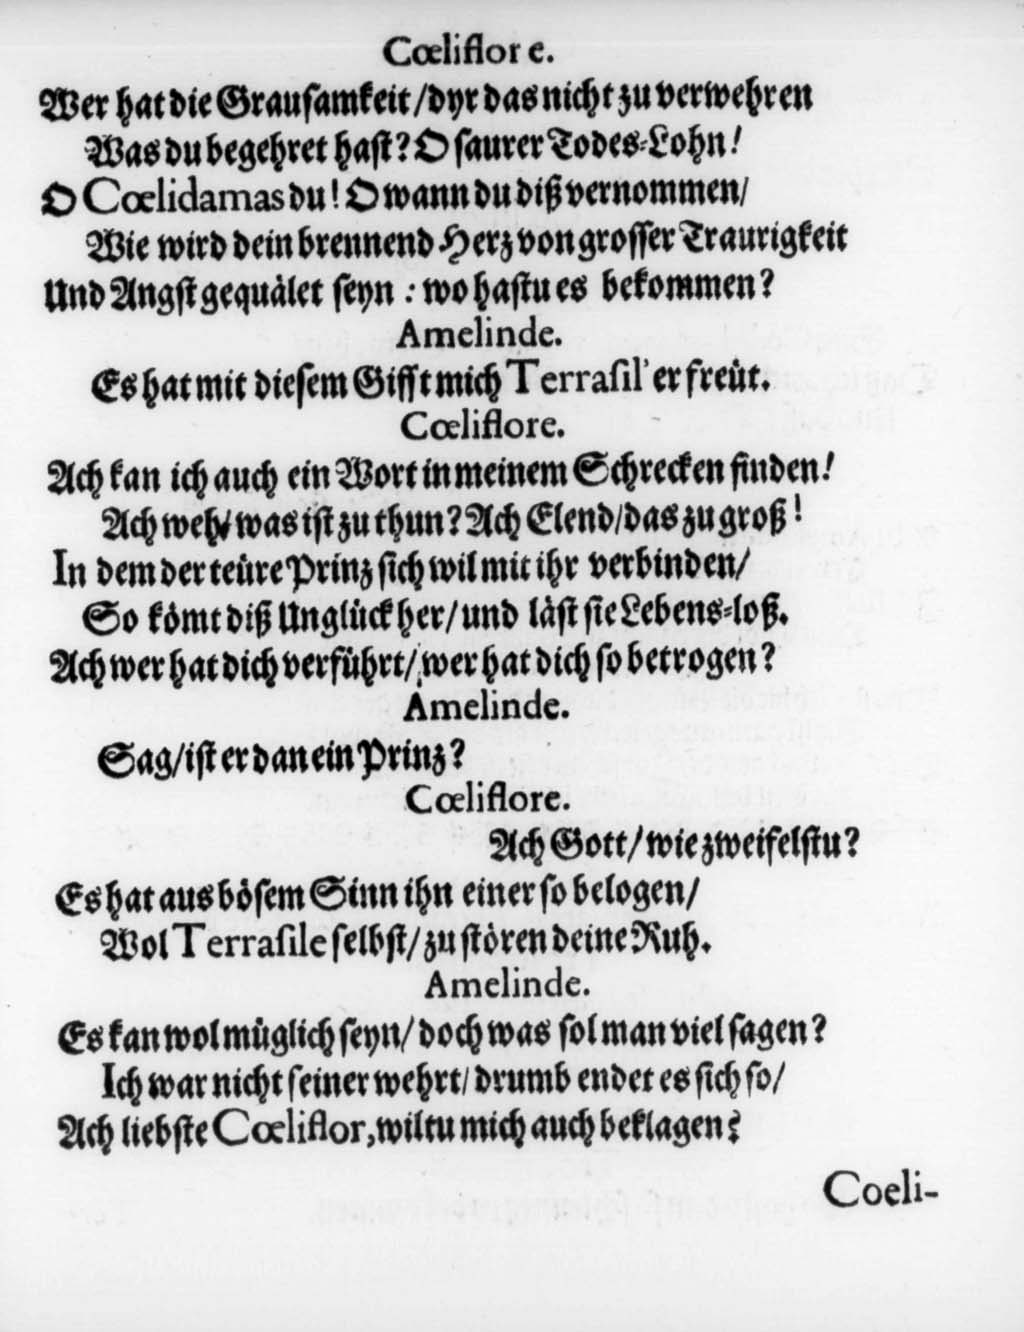 Cœliflore.
Wer hat die Grauſamkeit/dyr das nicht zu verwehren
Was du begehret haſt? O ſaurer Todes-Lohn!
O Cœlidamas du! O wann du diß vernommen/
Wie wird dein brennend Herz von groſſer Traurigkeit
Und Angſt gequålet ſeyn : wo haſtu es bekommen?
Amelinde.
Es hat mit dieſem Gifft mich Terraſil' erfreüt.
Cœliflore.
Ach kan ich auch ein Wort in meinem Schrecken finden!
Ach weh/ was iſt zu thun? Ach Elend/das zu groß!
In dem der teüre Prinz ſich wil mit ihr verbinden/
So kömt diß Unglück her/und låſt ſie Lebens-loß.
Ach wer hat dich verführt/ wer hat dich ſo betrogen?
Amelinde.
Sag/iſt er dan ein Prinz?
Cœliflore.
Ach Gott/wie zweifelſtu?
Es hat aus böſem Sinn ihn einer ſo belogen/
Wol Terraſile ſelbſt/zu ſtören deine Ruh.
Amelinde.
Es kan wol müglich ſeyn/ doch was ſol man viel ſagen?
Ich war nicht ſeiner wehrt/ drumb endet es ſich ſo/
Ach liebſte Cœliflor, wiltu mich auch beklagen?
Coeli-